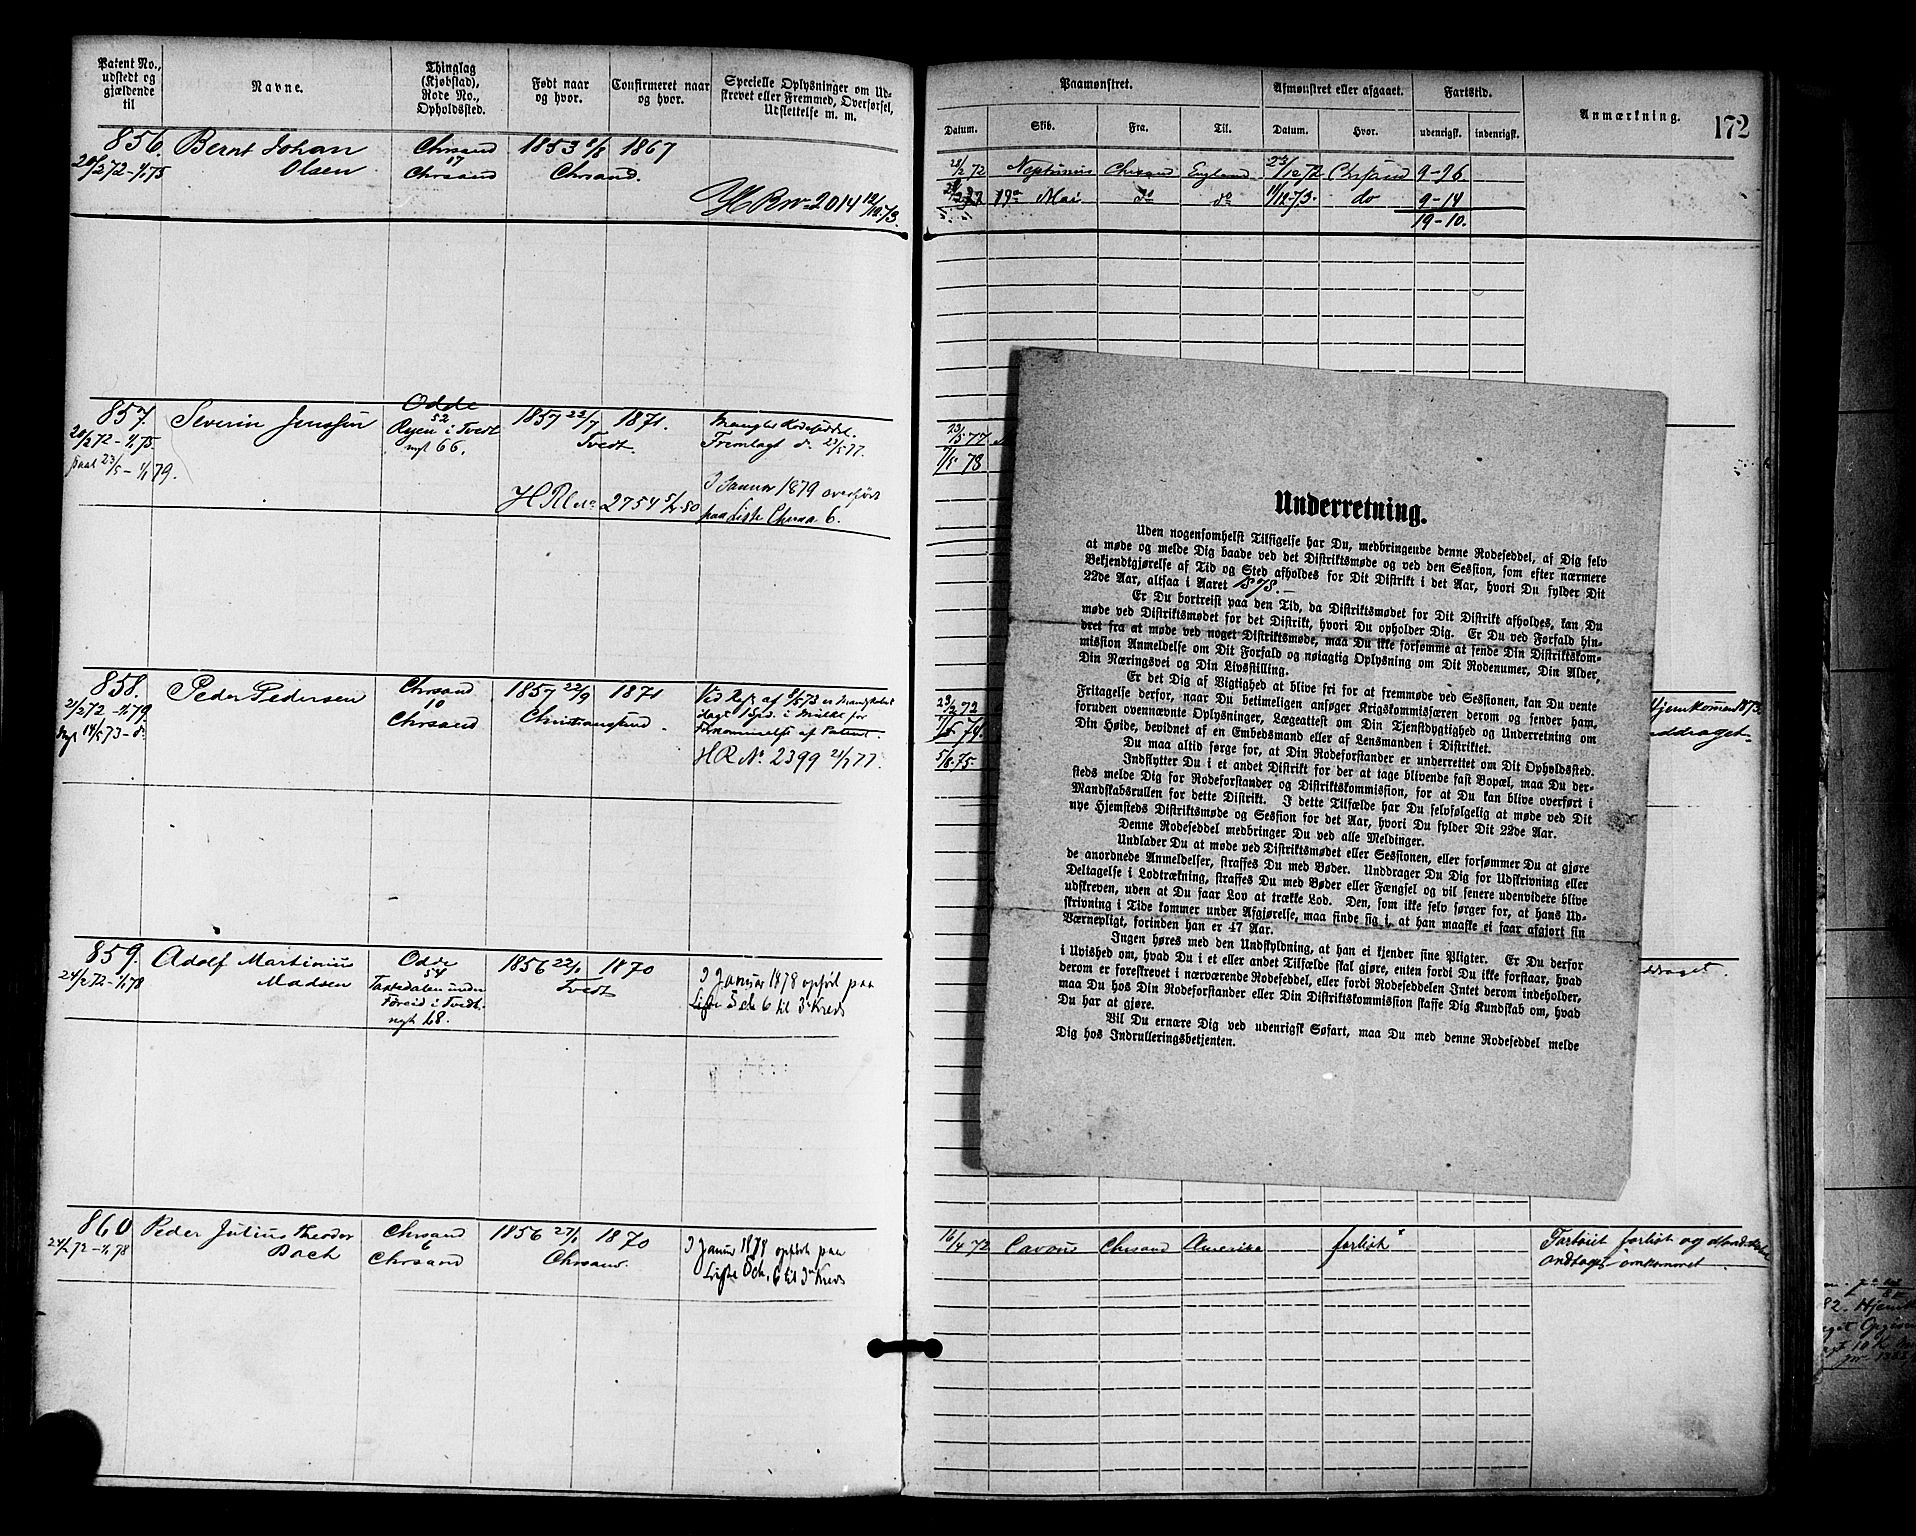 Patent No., udstedt og gjældende til
Navne.
Thinglag (Kjøbstad), Rode No., Opholdssted.
Født naar og hvor.
Confirmeret naar og hvor.
Specielle Oplysninger om Udskrevet eller Fremmed, Overførsel, Udslettelse m. m.
856. Bernt Johan Chrsand 1853 1867
20/2 72 - 1/1 75 Olsen 17 Chrsand Chrsand.
H R No 2014 12/12 73.
857. Severin Jenssen Odde 1857 22/7 1871. Mangler Rodeseddel.
20/2 72 - 1/1 75 52 Ryen i Tvedt Tvedt. Fremlagt d. 23/5 77.
paal 23/5 - 1/1 79. nyt 66.
I Januar 1879 overført
H R No 2754 5/2 80 paa Liste Chrsa. 6.
858. Peder Pedersen Chrsand 1857 22/9 1871
21/2 72 - 1/1 79. 10 Chrsand Christianssund.
nyt 14/5 73 - do
Forkommelse af Patent.
H R No. 2399 21/1 77.
859. Adolf Martinius Odde 1856 22/1 1870 I Januar 1878 opført paa
24/2 72 - 1/1 78 Madsen 54 Tvedt
i Tvedt. nyt 68.
860 Peder Julius Theodor Chrsand 1856 27/1 1870 I Januar 1878 opført paa
24/2 72 - 1/1 78 Bach 6 Chrsand Chrsand.
172
Paamønstret.
Afmønstret eller afgaaet.
Fartstid.
Anmærkning.
Datum. Skib. Fra. Til. Datum. Hvor. udenrigsk. indenrigsk.
28/2 72 Neptunus Chrsand England 23/12 72 Chrsand 9-26
19de Mai do do 11/12 73. do 9-14
19-10.
23/5 77
7/5 78
23/2 72 Hjemkommen 1873
5/8 75
Underretning.
Uden nogensomhelst Tilsigelse har Du, medbringende denne Rodeseddel, af Dig selv
at møde og melde Dig baade ved det Distriktsmøde og ved den Session, som efter nærmere
Bekjendtgjørelse af Tid og Sted afholdes for Dit Distrikt i det Aar, hvori Du fylder Dit
22de Aar, altsaa i Aaret 1878.-
Er Du bortreist paa den Tid, da Distriktsmødet for Dit Distrikt afholdes, kan Du
møde ved Distriktsmødet for det Distrikt, hvori Du opholder Dig. Er Du ved Forfald hin-
dret fra at møde ved noget Distriktsmøde, maa Du ikke forsømme at sende Din Distriktskom-
mission Anmeldelse om Dit Forfald og nøiagtig Oplysning om Dit Rodenumer, Din Alder,
Din Næringsvei og Din Livsstilling.
Er det Dig af Vigtighed at blive fri for at fremmøde ved Sessionen, kan Du vente
Fritagelse derfor, naar Du betimeligen ansøger Krigskommissæren derom og sender ham,
foruden ovennævnte Oplysninger, Lægeattest om Din Tjenstdygtighed og Underretning om
Din Høide, bevidnet af en Embedsmand eller af Lensmanden i Distriktet.
Du maa altid sørge for, at Din Rodeforstander er underrettet om Dit Opholdssted.
Indflytter Du i et andet Distrikt for der at tage blivende fast Bopæl, maa Du der-
steds melde Dig for Rodeforstander og Distriktskommission, for at Du kan blive overført i
Mandskabsrullen for dette Distrikt. I dette Tilfælde har Du selvfølgelig at møde ved Dit
nye Hjemsteds Distriktsmøde og Session for det Aar, hvori Du fylder Dit 22de Aar.
Denne Rodeseddel medbringer Du ved alle Meldinger.
Undlader Du at møde ved Distriktsmødet eller Sessionen, eller forsømmer Du at gjøre
de anordnede Anmeldelser, straffes Du med Bøder. Unddrager Du Dig for Udskrivning eller
Deltagelse i Lodtrækning, straffes Du med Bøder eller Fængsel og vil senere udenvidere blive
udskreven, uden at Du faar Lov at trække Lod. Den, som ikke selv sørger for, at hans Ud-
skrivning i Tide kommer under Afgjørelse, maa finde sig i, at han maaske ei faar afgjort sin
Værnepligt, forinden han er 47 Aar.
Ingen høres med den Undskyldning, at han ei kjender sine Pligter. Er Du derfor
i Uvished om, hvad Du i et eller andet Tilfælde skal gjøre, enten fordi Du ikke forstaar, hvad
derom er foreskrevet i nærværende Rodeseddel, eller fordi Rodeseddelen Intet derom indeholder,
maa Du hos Din Rodeforstander eller Din Distriktskommission skaffe Dig Kundskab om, hvad
Du har at gjøre.
Vil Du ernære Dig ved udenrigsk Søfart, maa Du med denne Rodeseddel melde
Dig hos Indrulleringsbetjenten.
16/4 72 Cavour Chrsand Amerika forlist Fartøiet forlist og
antages omkommet